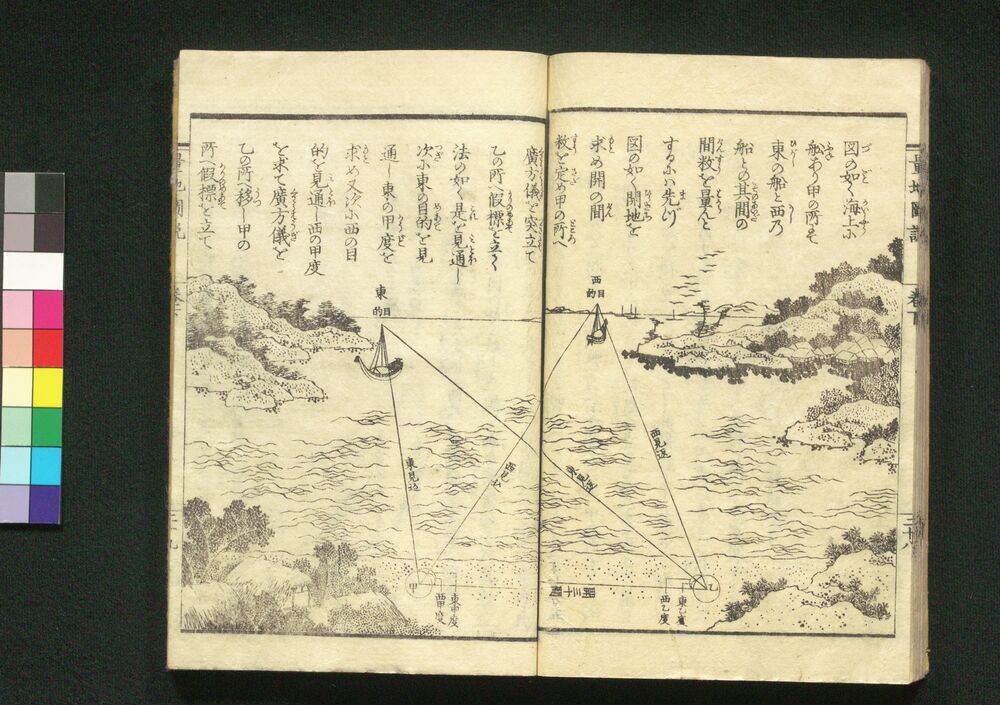 図の如く海上に
船あり甲の所にて
東の船と西乃
船との其間の
間数を量んと
するにハ先げ
図の如く開地を
求め開の間
数を定め甲の所へ
廣方儀を突立て
乙の所へ假標を立さく
法の如く是を見通し
次に東の目的を見
通し東の甲度を
求め又次に西の目
的を見通し西の甲度
を求て廣方儀を
乙の所へ移し甲の
所へ假標を立て
西
目的
東
目的
西見返
東見返
甲
乙
東甲度
西甲度
東乙度
西乙度
開三十間
量地圖説
巻下
廿八